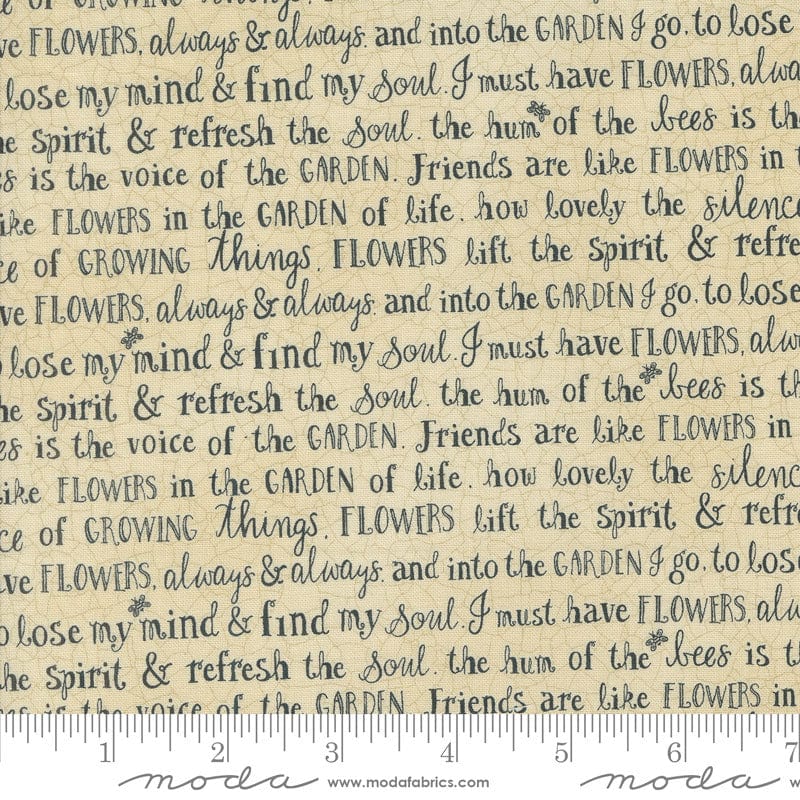 of GROWING things.
ve FLOWERS, always & always. and into the GARDEN I go, to lose
lose my mind & find my soul. I must have FLOWERS, alwa
he spirit & refresh the soul. the hum of the bees is th
es is the voice of the GARDEN. Friends are like FLOWERS in t
ike FLOWERS in the GARDEN of life. how lovely the silence
ce of GROWING things. FLOWERS lift the spirit & refre
ve FLOWERS, always & always. and into the GARDEN I go, to lose
o lose my mind & find my soul. I must have FLOWERS, alw
he spirit & refresh the soul. the hum of the bees is th
es is the voice of the GARDEN. Friends are like FLOWERS in
ike FLOWERS in the GARDEN of life. how lovely the silenc
ce of GROWING things. FLOWERS lift the spirit & refr
ve FLOWERS, always & always. and into the GARDEN I go, to lose
o lose my mind & find my soul. I must have FLOWERS, alw
he spirit & refresh the soul. the hum of the bees is t
es is the voice of the GARDEN. Friends are like FLOWERS in
1 2 3 4 5 6 7
moda www.modafabrics.com moda w